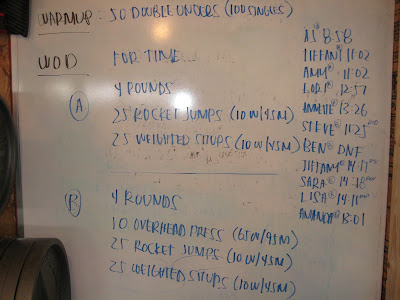 WARMUP: 50 DOUBLE UNDERS (100 SINGLES)
WOD FOR TIME
4 ROUNDS
A 25 ROCKET JUMPS (10W/45M)
25 WEIGHTED SITUPS (10W/45M)
B 4 ROUNDS
10 OVERHEAD PRESS (65W/95M)
25 ROCKET JUMPS (10W/45M)
25 WEIGHTED SITUPS (10W/45M)
TIFFANI 11:02
AMY 11:02
LORI 12:57
13:26
STEVE 11:25
BEN DNF
TIFFANY
SARA
LISA
AMANDA